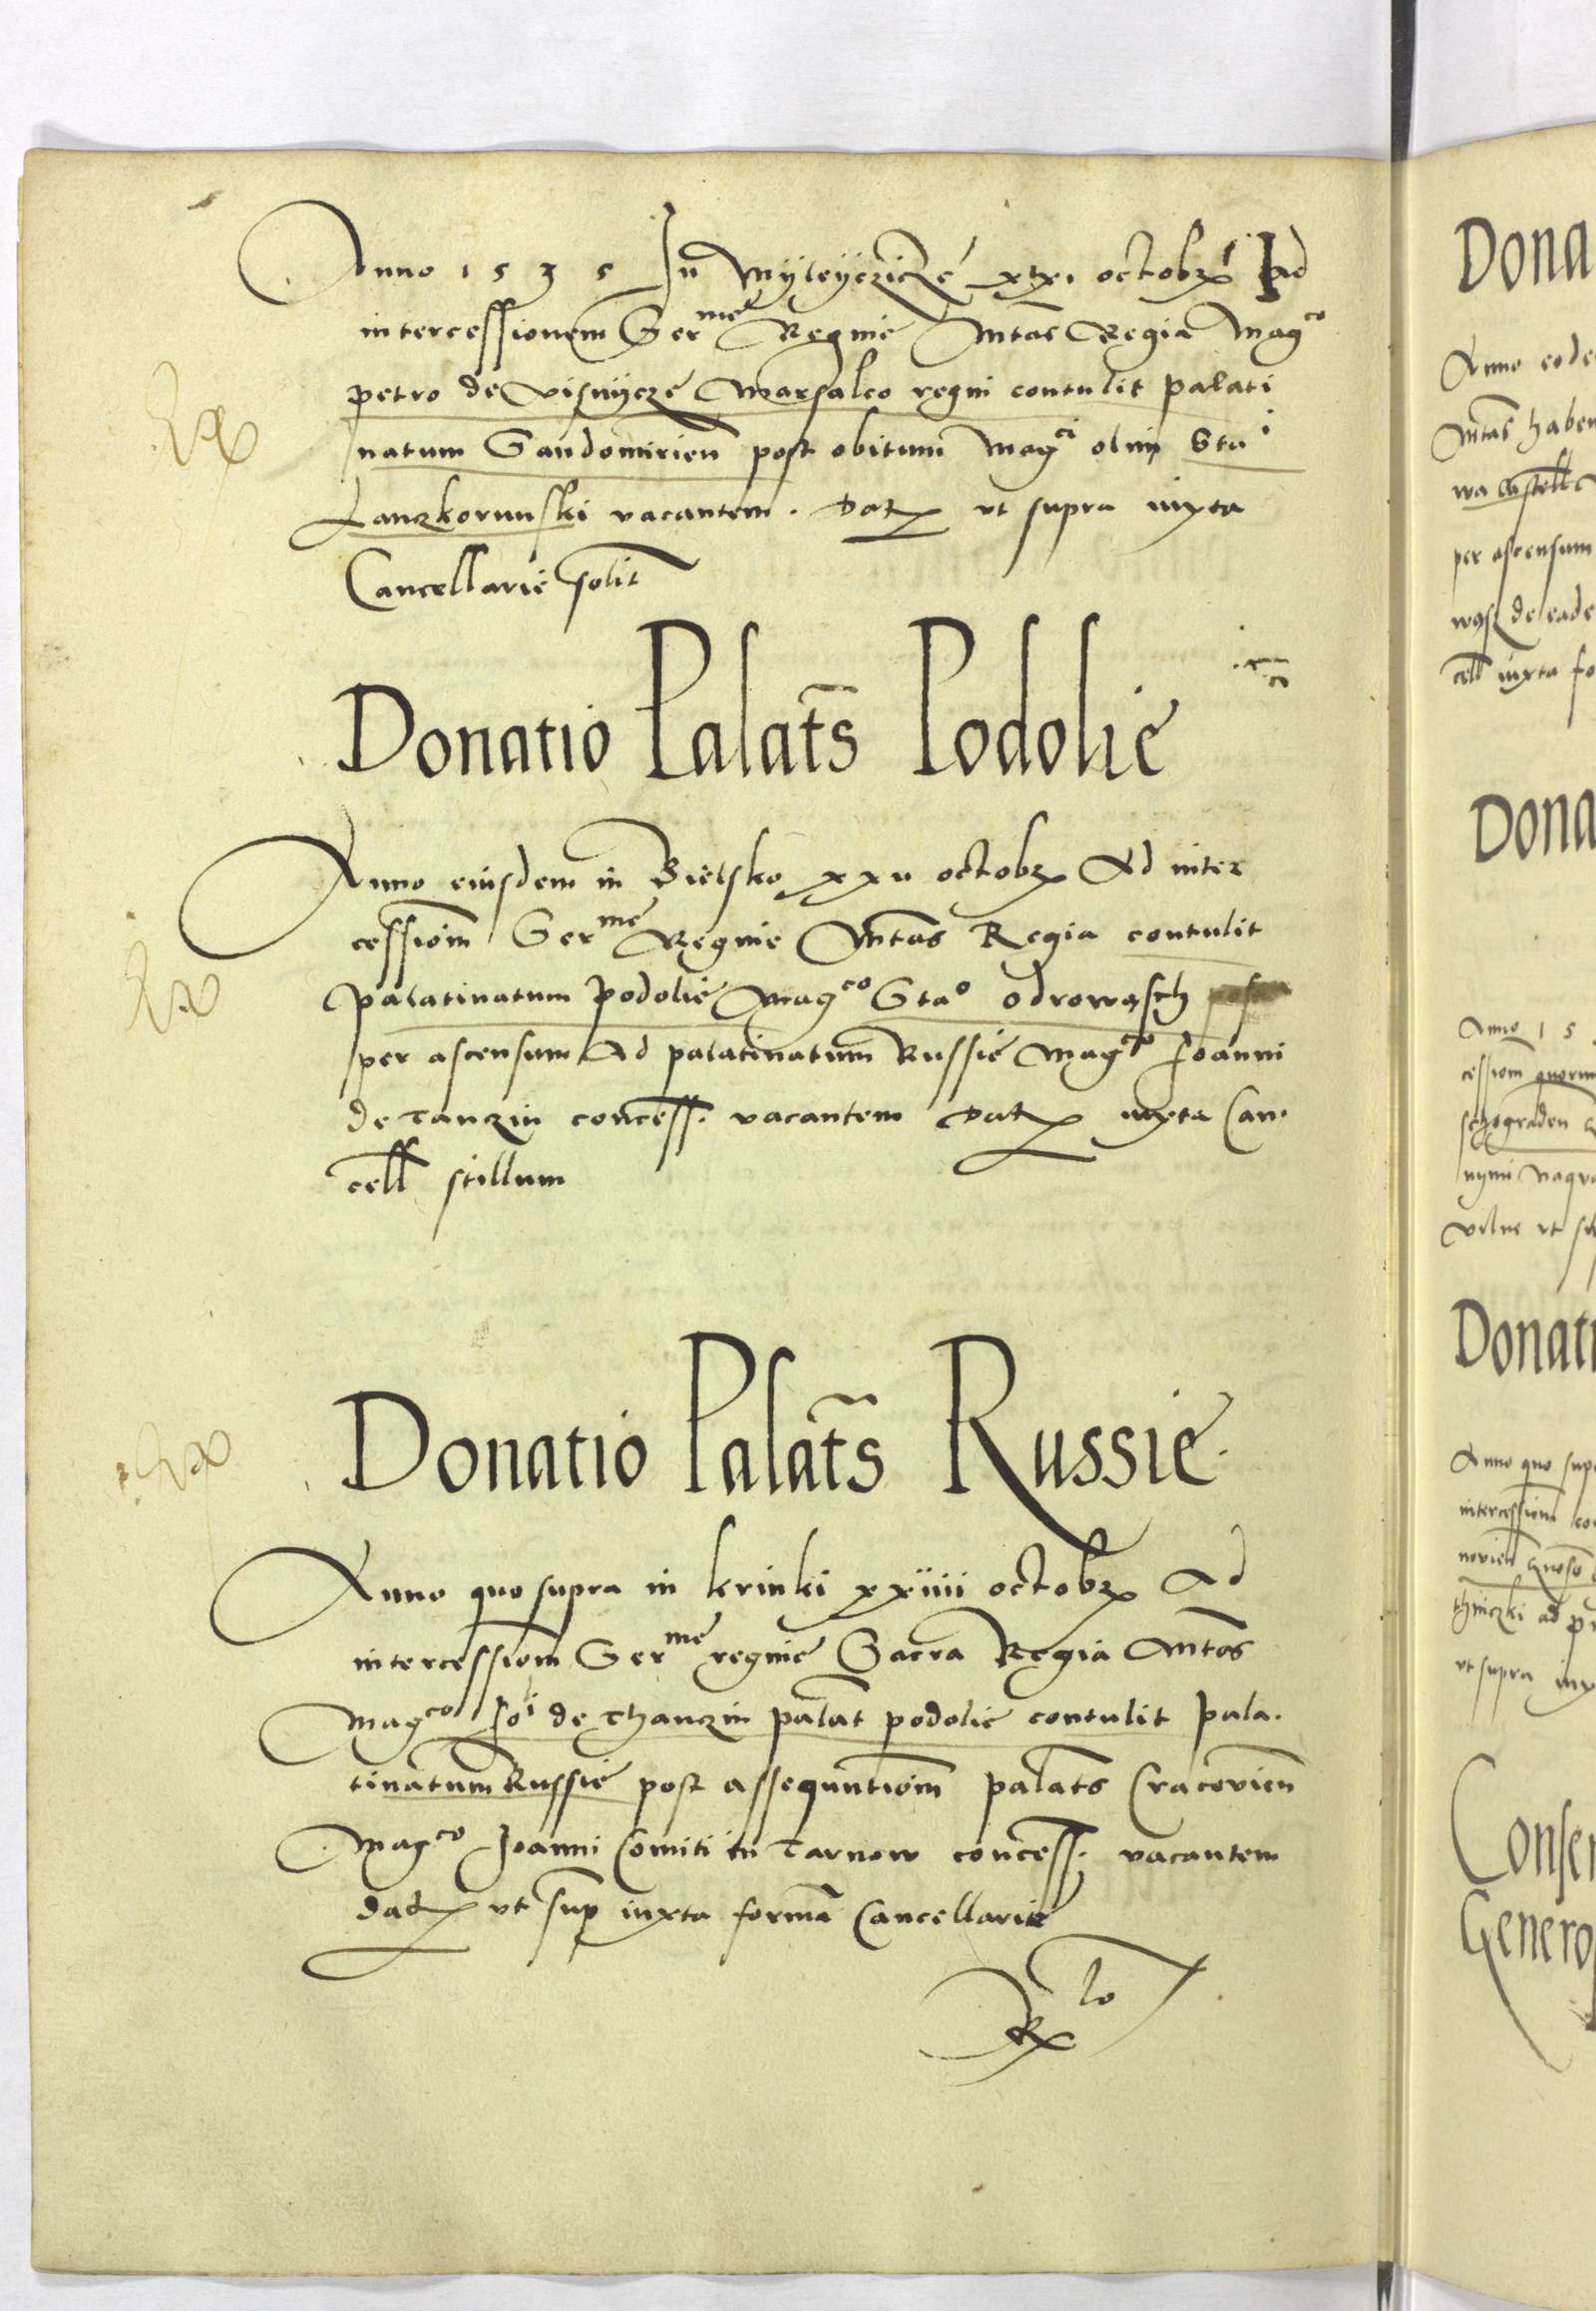 Anno 1535 In Myleyczicze xxi. octobr Ad
intercessionem Serme Regine Mtas Regia Magco
petro de Visnycze Marsalco regni contulit palati
natum Sandomirien post obitum Magci olim Stai
Lanzkorunski vacantem. Dat ut supra iuxta
Cancellarie solit
Donatio Palats Podolie
Anno eiusdem in Bielsko xxii octobr Ad inter
cessiom Serme Regine Mtas Regia contulit
palatinatum podolie Magco Stao odrowasch
per ascensum Ad palatinatum Russie Magco Joanni
de Tanzin concess. vacantem Dat iuxta Can.
cell stillum
Donatio Palats Russie.
Anno quo supra in krinki xxiiii octobr Ad
intercessiom Serme regine Sacra Regia Mtas
Magco Joi de Thanzin palat podolie contulit pala.
tinatum Russie post assequutiom palats Cracovien
Magco Joanni Comiti in Tarnow concess. vacantem
dat ut sup iuxta forma Cancellarie
Dona
Anno eode
Mtas haben
wa castell
per ascensum
de eade
cell iuxta fo
Dona
Anno 15
cessiom quorun
schograden
nymi Nagro
Donati
Anno quo sup
intercessiom co
novien
thniczki ad p
ut supra iux
Conser
Genero